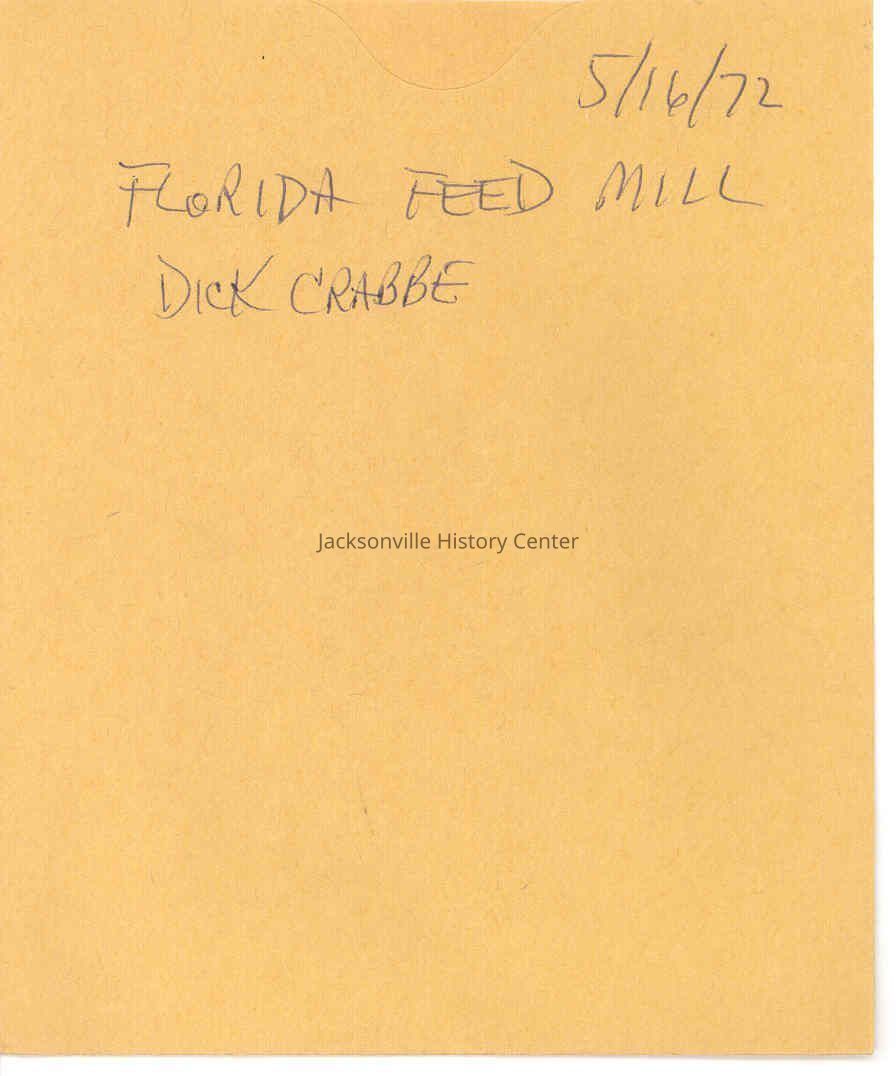 5/16/72
FLORIDA FEED MILL
DICK CRABBE
Jacksonville History Center